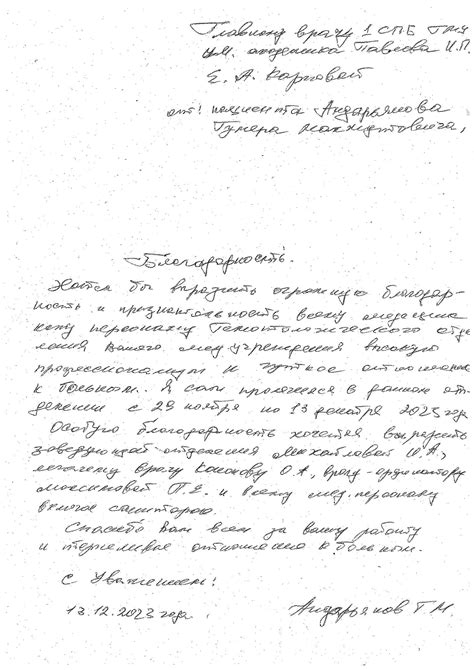 Главному врачу 1 СПБ ГМУ
им. академика Павлова И.П.
Е. А. Карповой
от: пациента Андарьянова
Гумера Махмутовича,
Благодарность.
Хотел бы выразить огромную благодар-
ность и признательность всему медицин
кому персоналу Гематологического отде
ления Вашего медучреждения высокую
профессионализм и чуткое отношение
к больным. Я сам пролечился в данном от-
делении с 29 ноября по 13 декабря 2023 года
Особую благодарность хочется выразить
заведующей отделения Михайловой И.А.,
лечащему врачу Кононову О.А., врачу-ординатору
Максимовой П.Е. и всему мед. персоналу
включая санитарок.
Спасибо Вам всем за вашу работу
и терпеливое отношение к больным.
С Уважением!
13.12.2023 года. Андарьянов Г М.